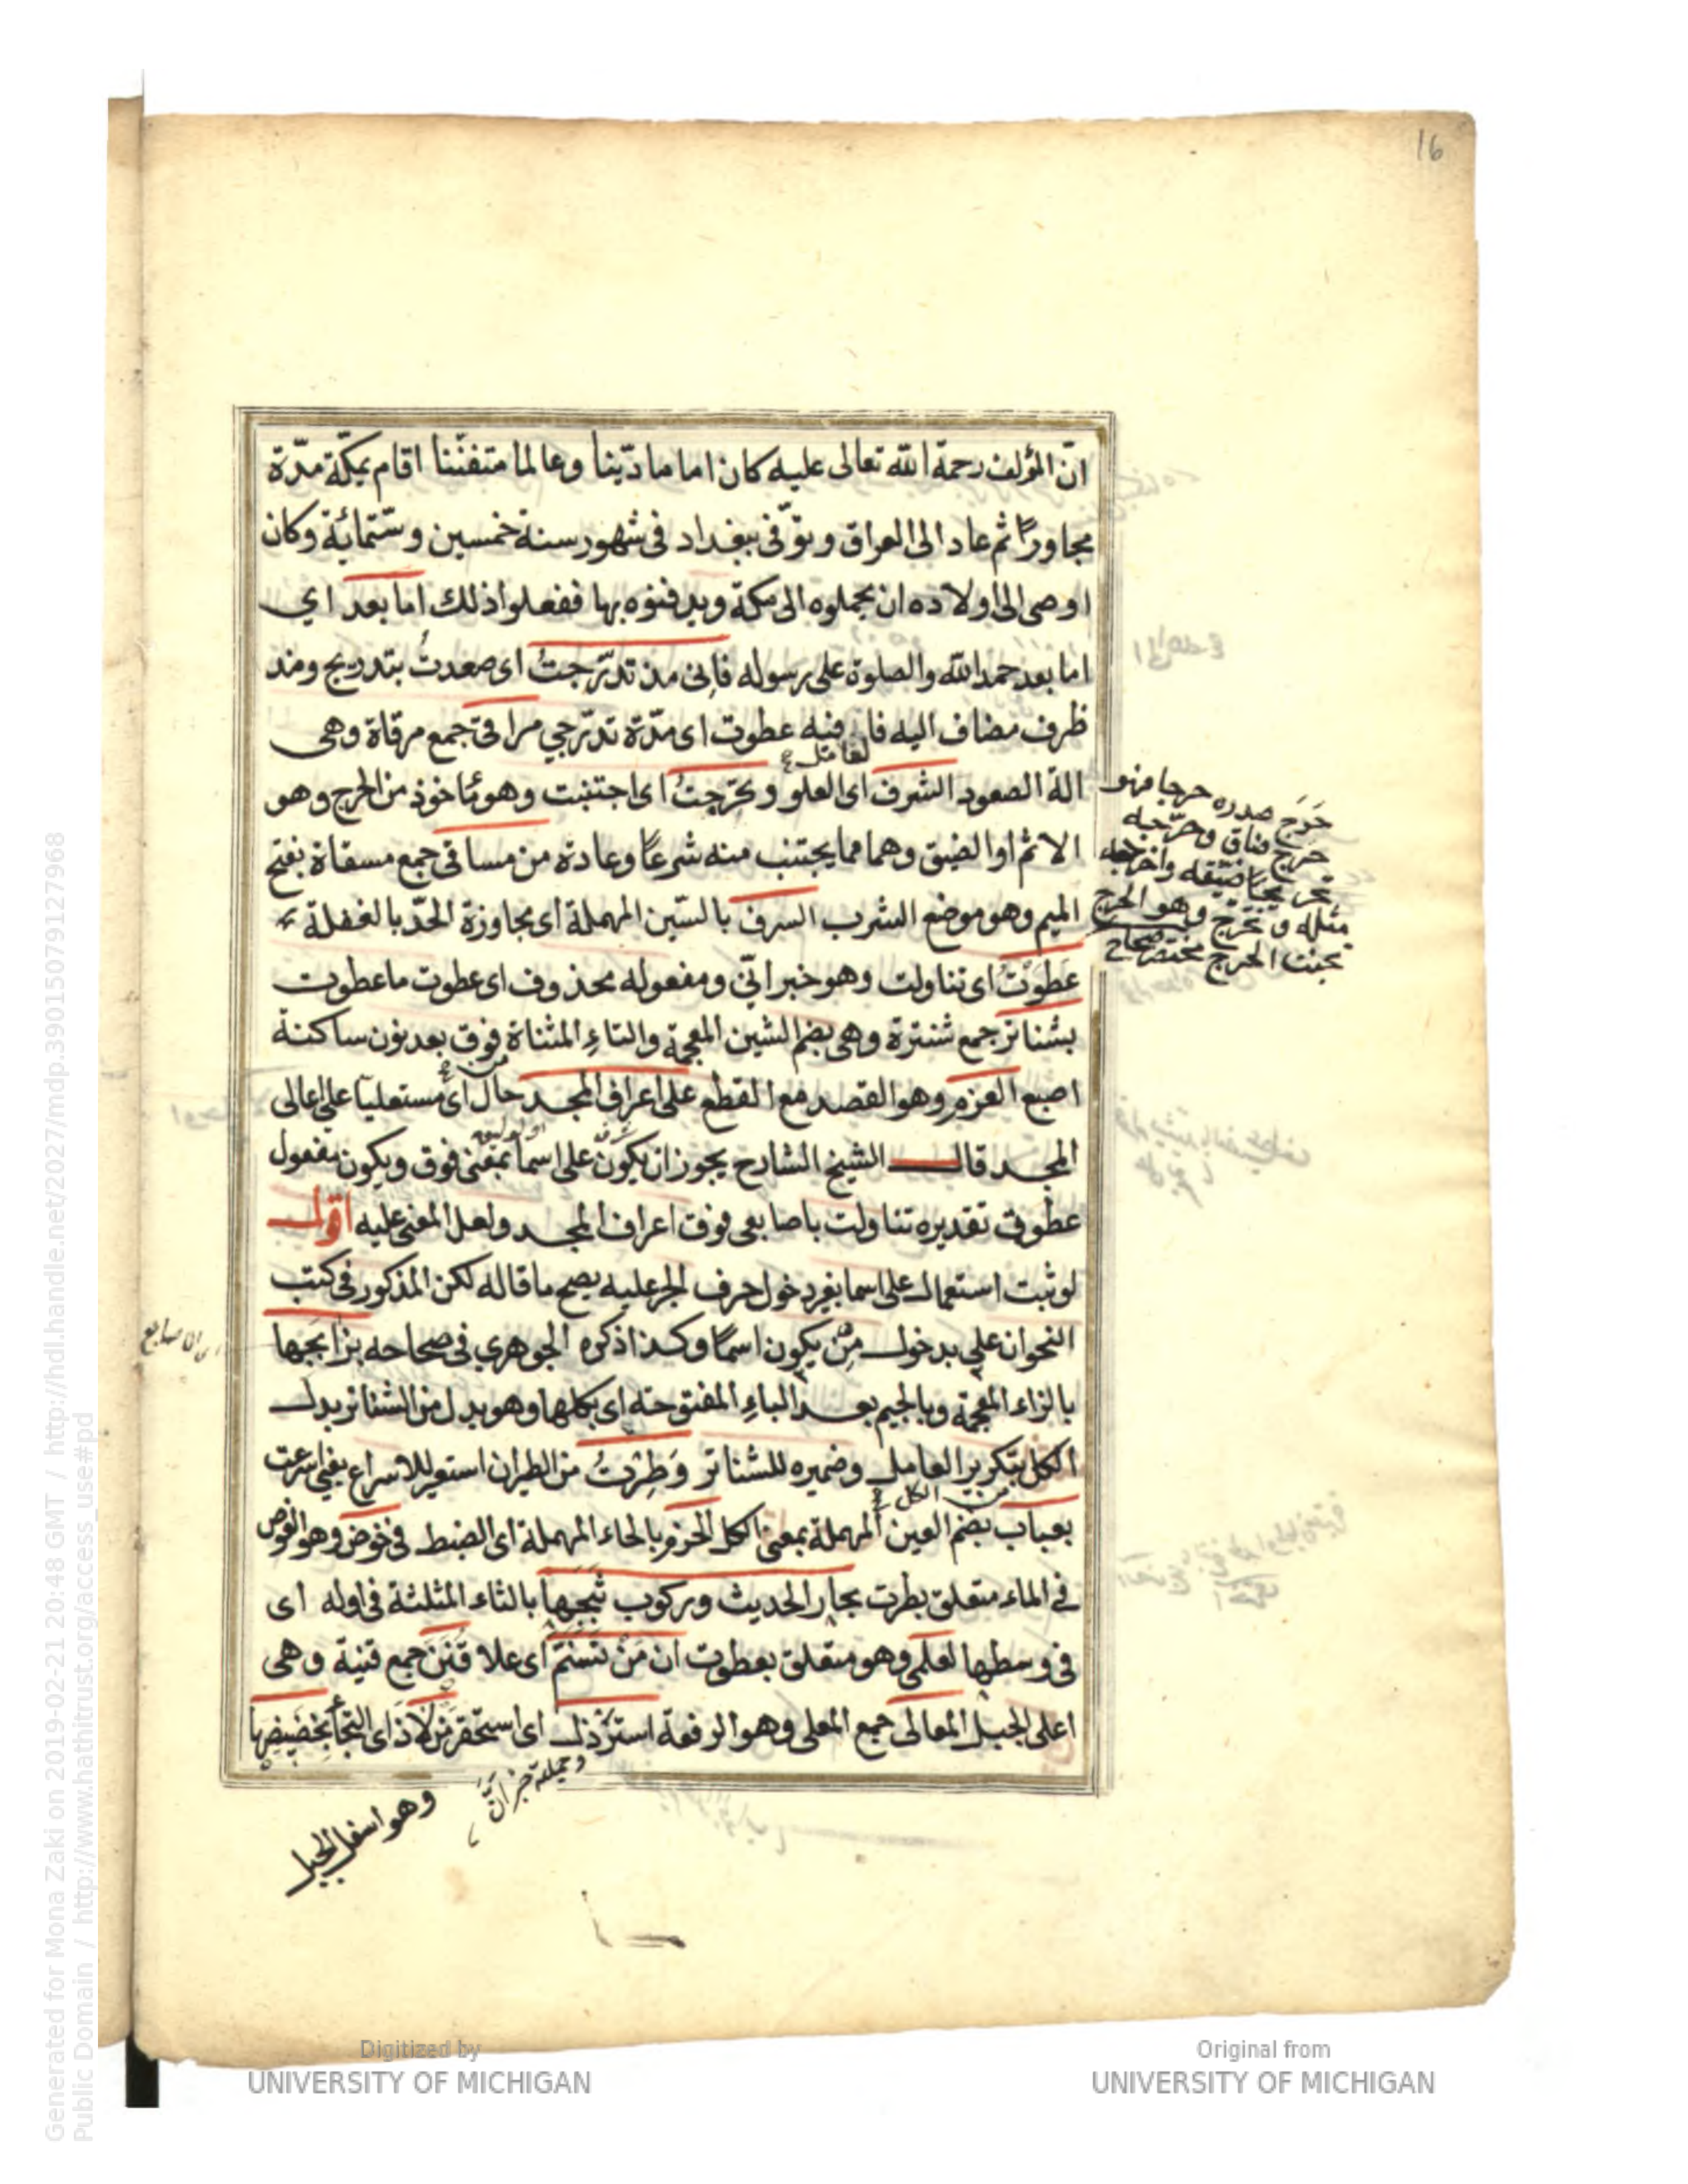 16
انّ المؤلف رحمة الله تعالى عليه كان اماما ديّنا وعالما متفنّنا اقام بمكّة مدّة
مجاورًا ثم عاد الى العراق وتوّفى ببغداد فى شهور سنة خمسين وستمّائة وكان
اوصى الى اولاده ان يحملوه الى مكة ويدفنوه بها ففعلوا ذلك اما بعد اي
اما بعد حمد الله والصلوة على رسوله فاِنى مذ تدرّجتُ اى صعدت بتدريج ومذ
ظرف مضاف اليه فا فيه عطوت اى مدّة تدرّجي مراقى جمع مرقاة وهى
الة الصعود الشرف اى العلو وتحرّجتُ اى اجتنبت وهو مأخوذ من الحرج وهو
الاثم او الضيق وهما مما يجتنب منه شرعًا وعادة من مساقى جمع مسقاة بفتح
الميم وهو موضع الشرب السرف بالسّين المهملة اى مجاوزة الحدّ بالغفلة
عَطَوْتُ اى تناولت وهو خبر انّى ومفعوله محذوف اى عطوت ما عطوت
بشناتر جمع شنترة وهى بضم الشين المعجمة والتاءِ المثناة فوق بعد نون ساكنة
اصبع العزم وهو القصد مع القطع على اعراف المجد حال اى مستعليا على اعالى
المجد قال الشيخ الشارح يجوز ان يكون على اسما بمعنى فوق ويكون مفعول
عطوتُ تقديره تناولت باصابعى فوق اعراف المجد ولعل المعنى عليه اقول
لو ثبت استعمال على اسما بغير دخول حرف الجر عليه يصح ما قاله لكن المذكور فى كتب
النحو ان على بدخول مِن يكون اسمًا وكذا ذكره الجوهري فى صحاحه بزابجها
بالزاء المعجمة وبالجيم بعد الباءِ المفتوحة اى بكلها وهو بدل من الشناتر بدل
الكل بتكرير العامل وضميره للشناتر وَطِرْتُ من الطيران استعير للاسراع يعنى اسرعت
بعباب بضم العين المهملة بمعنى الكل الحزم بالحاء المهملة اى الضبط فى خوض وهو الغوص
فى الماء متعلق بطرت بحار الحديث وركوب ثَبَجها بالثاء المثلثة فى اوله اى
فى وسطها لعلمى وهو متعلق بعطوت ان مَنْ تَسَنَّم اى علا قُنَنَ جمع قنية وهى
اعلى الجبل المعالى جمع المعلى وهو الرفعة استرذل اى استحقر مَن لاذ اى التجأ بحضيضها
حَرَجَ صدره حرجا فهو
حرج ضاق وحرّجه
تحريجا ضيّقه واحرجه
مثله و تحرّج وهو الحرج
تجنب الحرج مختصر صحاح
وجملته خبر انّ
وهو اسفل الجبل
Generated for Mona Zaki on 2019-02-21 20:48 GMT / http://hdl.handle.net/2027/mdp.39015079127968
Public Domain / http://www.hathitrust.org/access_use#pd
Digitized by
UNIVERSITY OF MICHIGAN
Original from
UNIVERSITY OF MICHIGAN